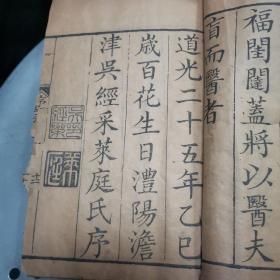 福閨闥蓋將以醫夫
盲而醫者
道光二十五年乙巳
歲百花生日澧陽澹
津吳經采萊庭氏序